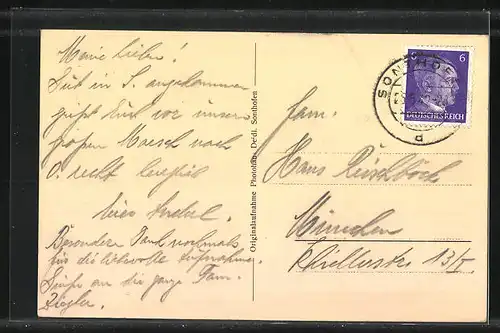 Meine Lieben!
Gut in S. angekommen
grüßt Euch vor unserm
großen Marsch nach
O. recht herzlich
Euer
Besonderen Dank nochmals
für die liebevolle Aufnahme.
Grüße an die ganze Fam.
Ziegler.
Originalaufnahme Photohaus Sonthofen
Fam.
Hans
München
13/I
SONTHOFEN
d
6
DEUTSCHES REICH